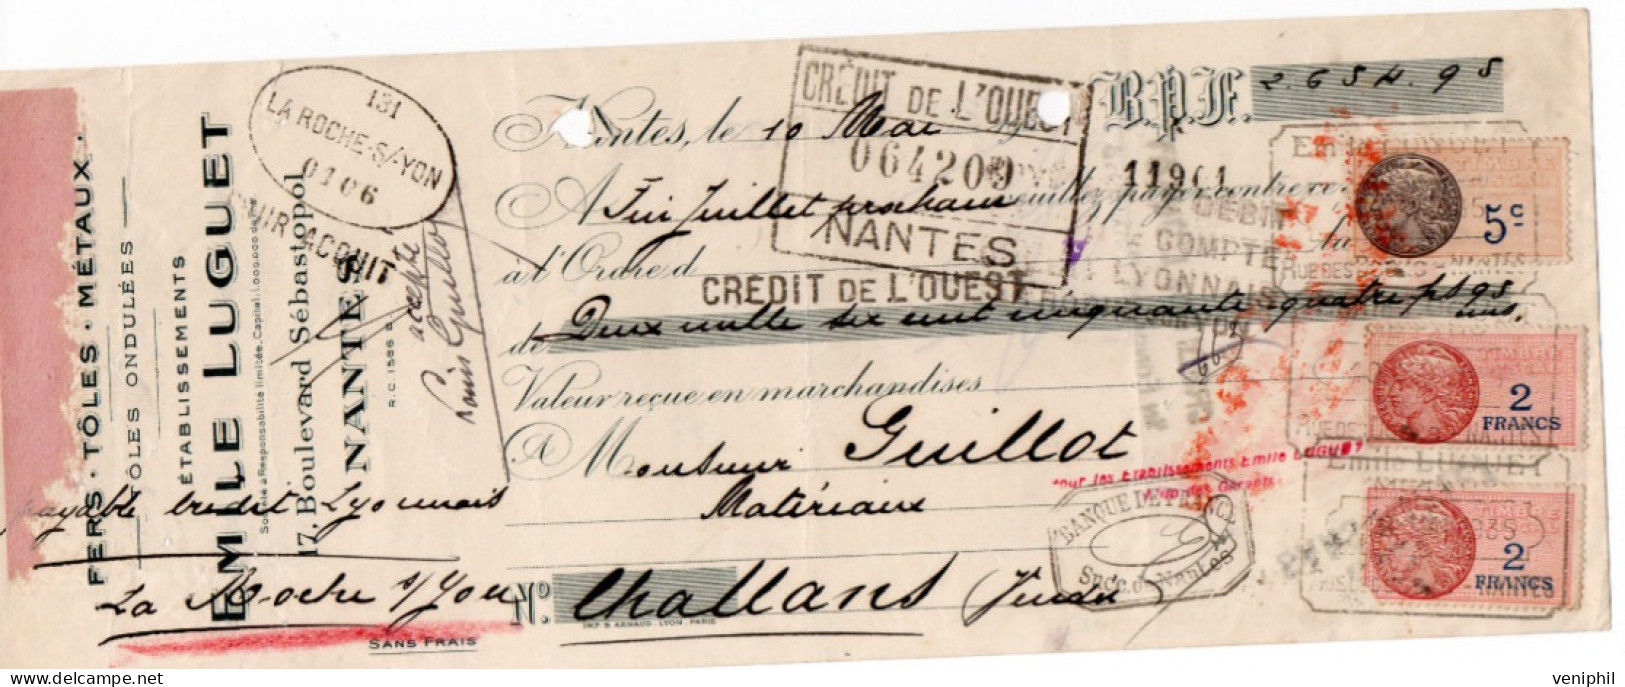 FERS · TÔLES · MÉTAUX
TÔLES ONDULÉES
ÉTABLISSEMENTS
EMILE LUGUET
Société à Responsabilité limitée, Capital: 1.000.000 de
17, Boulevard Sébastopol
NANTES
R.C. 1586 B
accepté
Louis Guillot
131
LA ROCHE-S/-YON
0106
payable Crédit Lyonnais
La Roche s/Yon
SANS FRAIS
Nantes, le 10 Mai
B.P.F. 2.654.95
CRÉDIT DE L'OUEST
064209
NANTES
11961
A Fin Juillet prochain veuillez payer contre ce
à l'Ordre d
CREDIT DE L'OUEST
DEBIT
COMPTE
LYONNAIS
de Deux mille six cent cinquante quatre frs 95
Valeur reçue en marchandises
à Monsieur Guillot
Matériaux
No. Challans (Vendée)
IMP B. ARNAUD. LYON. PARIS
Pour les Etablissements Emile LUGUET
BANQUE DE FRANCE
Succ. de Nantes
5c
TIMBRE
2
FRANCS
Emile LUGUET
2
FRANCS
NANTES
veniphil